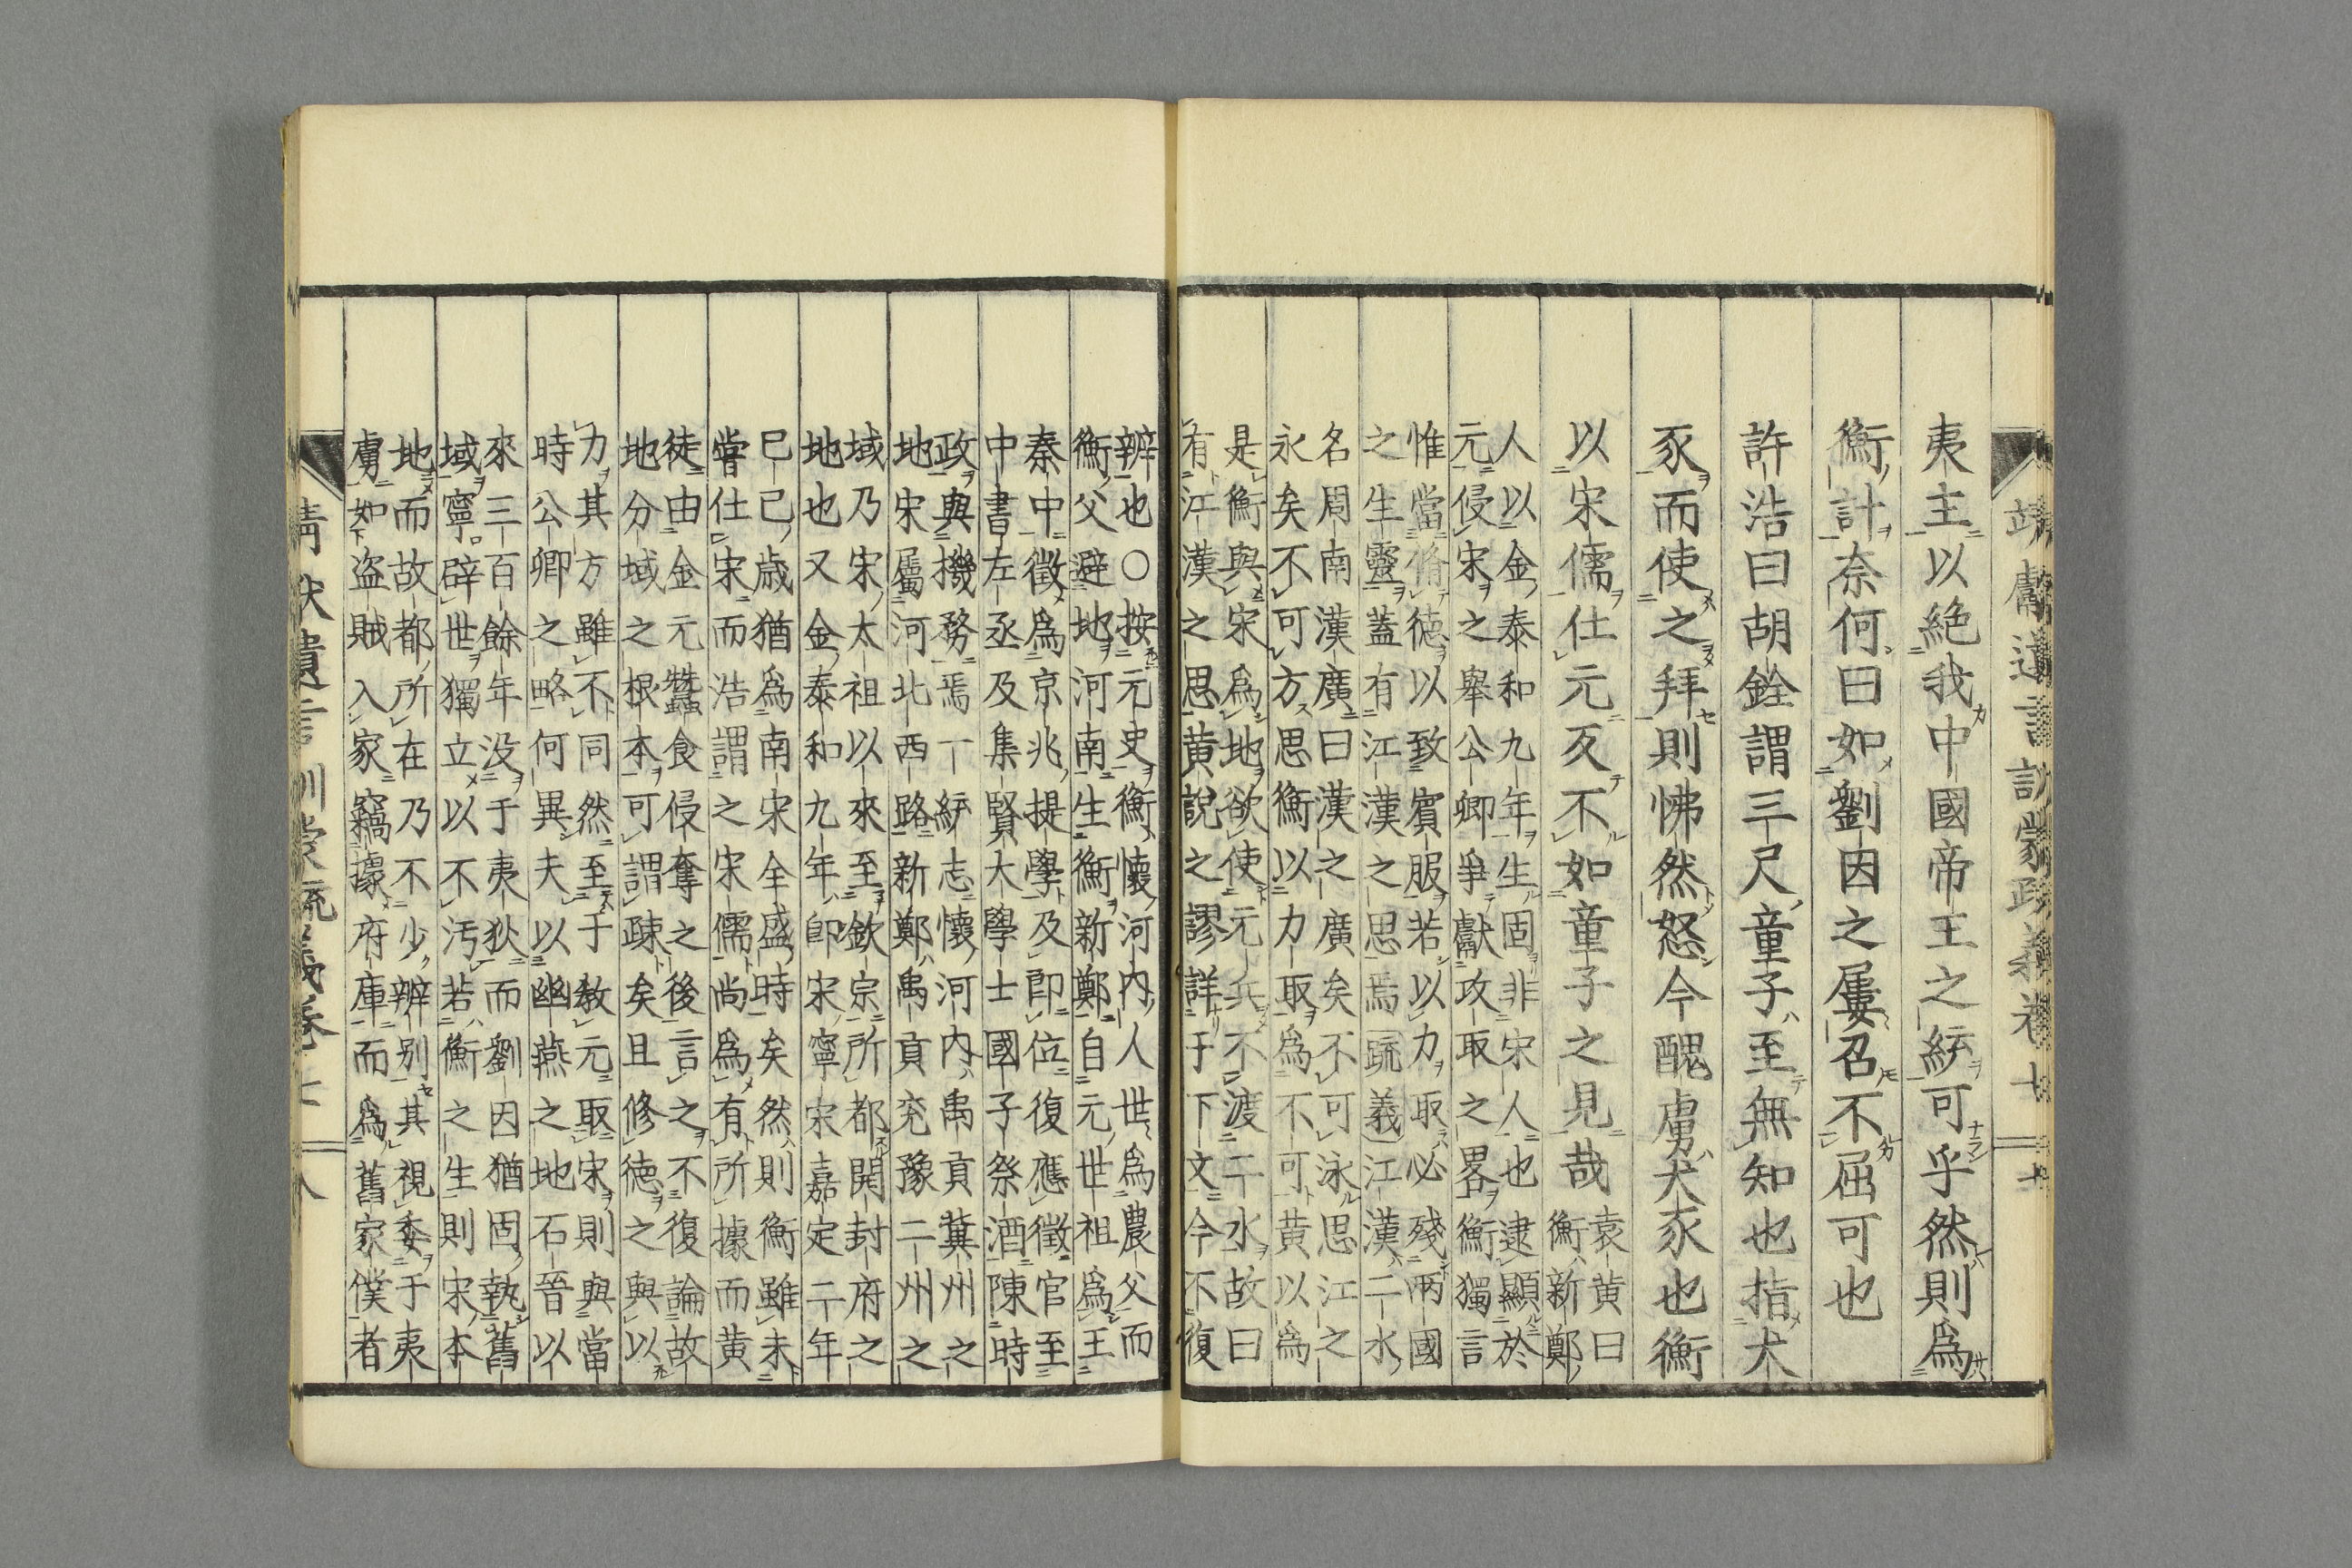 夷主以絶我中國帝王之統可乎然則爲
衡計奈何曰如劉因之屢召不屈可也
許浩曰胡銓謂三尺童子至無知也指犬
豕而使之拜則怫然怒今醜虜犬豕也衡
以宋儒仕元反不如童子之見哉
袁黄曰
衡新鄭
人以金泰和九年生固非宋人也逮顯於
元侵宋之擧公卿爭獻攻取之畧衡獨言
惟當脩德以致賓服若以力取必殘兩國
之生靈蓋有江漢之思焉疏義江漢二水
名周南漢廣曰漢之廣矣不可泳思江之
永矣不可方思衡以力取爲不可黄以爲
是衡與宋爲地欲使元兵不渡二水故曰
有江漢之思黄說之謬詳于下文今不復
辨也〇按元史衡懷河内人世爲農父而
衡父避地河南生衡新鄭自元世祖爲王
秦中徵爲京兆提學及即位復應徵官至
中書左丞及集賢大學士國子祭酒陳時
政與機務焉一統志懷河内禹貢冀州之
地宋屬河北西路新鄭禹貢兗豫二州之
域乃宋太祖以來至欽宗所都開封府之
地也又金泰和九年卽宋寧宋嘉定二年
已巳歳猶爲南宋全盛時矣然則衡雖未
嘗仕宋而浩謂之宋儒尚爲有所據而黄
徒由金元蠶食侵奪之後言之不復論故
地分域之根本可謂疎矣且修德之與以
力其方雖不同然至于敖元取宋則與當
時公卿之略何異夫以幽燕之地石晉以
來三百餘年没于夷狄而劉因猶固執舊
域寧辟世獨立以不汚若衡之生則宋本
地而故都所在乃不少辨别其視委于夷
虜如盗賊入家竊據府庫而爲舊家僕者